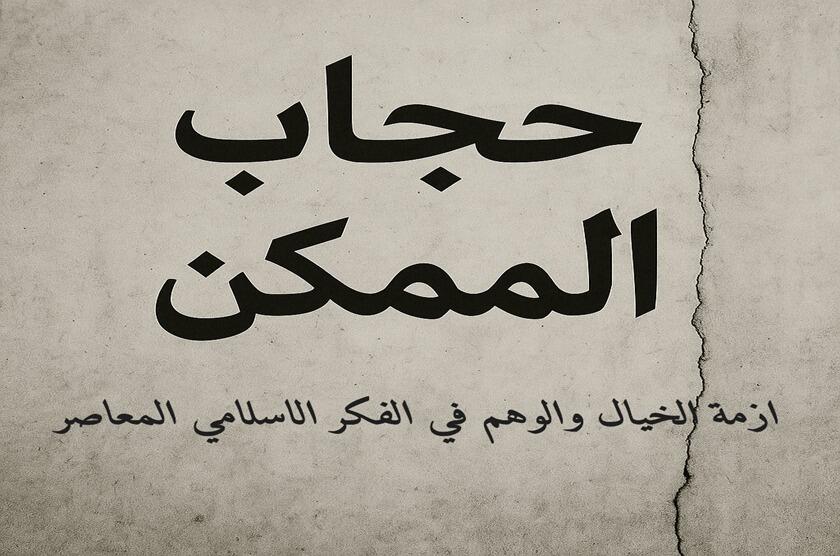 حجاب
الممكن
ازمة الخيال والوهم في الفكر الاسلامي المعاصر